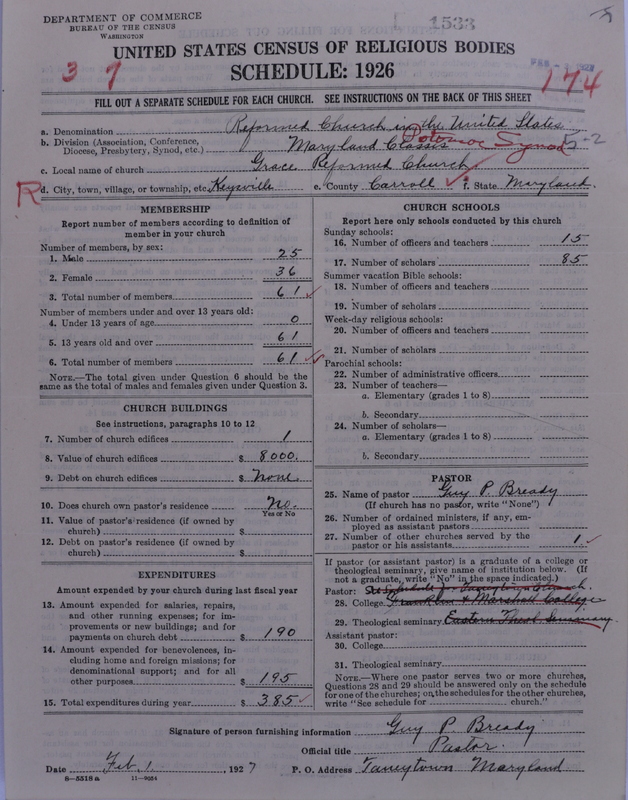 DEPARTMENT OF COMMERCE
BUREAU OF THE CENSUS
WASHINGTON
1533
UNITED STATES CENSUS OF RELIGIOUS BODIES
SCHEDULE: 1926
3 9
174
FILL OUT A SEPARATE SCHEDULE FOR EACH CHURCH. SEE INSTRUCTIONS ON THE BACK OF THIS SHEET
a. Denomination Reformed Church in the United States
b. Division (Association, Conference, Diocese, Presbytery, Synod, etc.) Maryland Classis Potomac Synod 5-2
c. Local name of church Grace Reformed Church
R d. City, town, village, or township, etc. Keysville e. County Carroll f. State Maryland.
MEMBERSHIP
Report number of members according to definition of
member in your church
Number of members, by sex:
1. Male 25
2. Female 36
3. Total number of members 61
Number of members under and over 13 years old:
4. Under 13 years of age 0
5. 13 years old and over 61
6. Total number of members 61
NOTE.—The total given under Question 6 should be the
same as the total of males and females given under Question 3.
CHURCH BUILDINGS
See instructions, paragraphs 10 to 12
7. Number of church edifices 1
8. Value of church edifices $ 8000.
9. Debt on church edifices $ None.
10. Does church own pastor's residence No.
Yes or No
11. Value of pastor's residence (if owned by
church) $
12. Debt on pastor's residence (if owned by
church) $
EXPENDITURES
Amount expended by your church during last fiscal year
13. Amount expended for salaries, repairs,
and other running expenses; for im-
provements or new buildings; and for
payments on church debt $ 190
14. Amount expended for benevolences, in-
cluding home and foreign missions; for
denominational support; and for all
other purposes $ 195
15. Total expenditures during year $ 385
CHURCH SCHOOLS
Report here only schools conducted by this church
Sunday schools:
16. Number of officers and teachers 15
17. Number of scholars 85
Summer vacation Bible schools:
18. Number of officers and teachers
19. Number of scholars
Week-day religious schools:
20. Number of officers and teachers
21. Number of scholars
Parochial schools:
22. Number of administrative officers
23. Number of teachers—
a. Elementary (grades 1 to 8)
b. Secondary
24. Number of scholars—
a. Elementary (grades 1 to 8)
b. Secondary
PASTOR
25. Name of pastor Guy P. Bready
(If church has no pastor, write "None")
26. Number of ordained ministers, if any, em-
ployed as assistant pastors
27. Number of other churches served by the
pastor or his assistants 1
If pastor (or assistant pastor) is a graduate of a college or
theological seminary, give name of institution below. (If
not a graduate, write "No" in the space indicated.)
Pastor: See Schedule for Taneytown Church.
28. College Franklin & Marshall College
29. Theological seminary Eastern Theol. Seminary
Assistant pastor:
30. College
31. Theological seminary
NOTE.—Where one pastor serves two or more churches,
Questions 28 and 29 should be answered only on the schedule
for one of the churches; on the schedules for the other churches,
write "See schedule for church."
Signature of person furnishing information Guy P. Bready
Official title Pastor.
Date Feb. 1, 1927 P. O. Address Taneytown Maryland
8-5518 a 11-9034